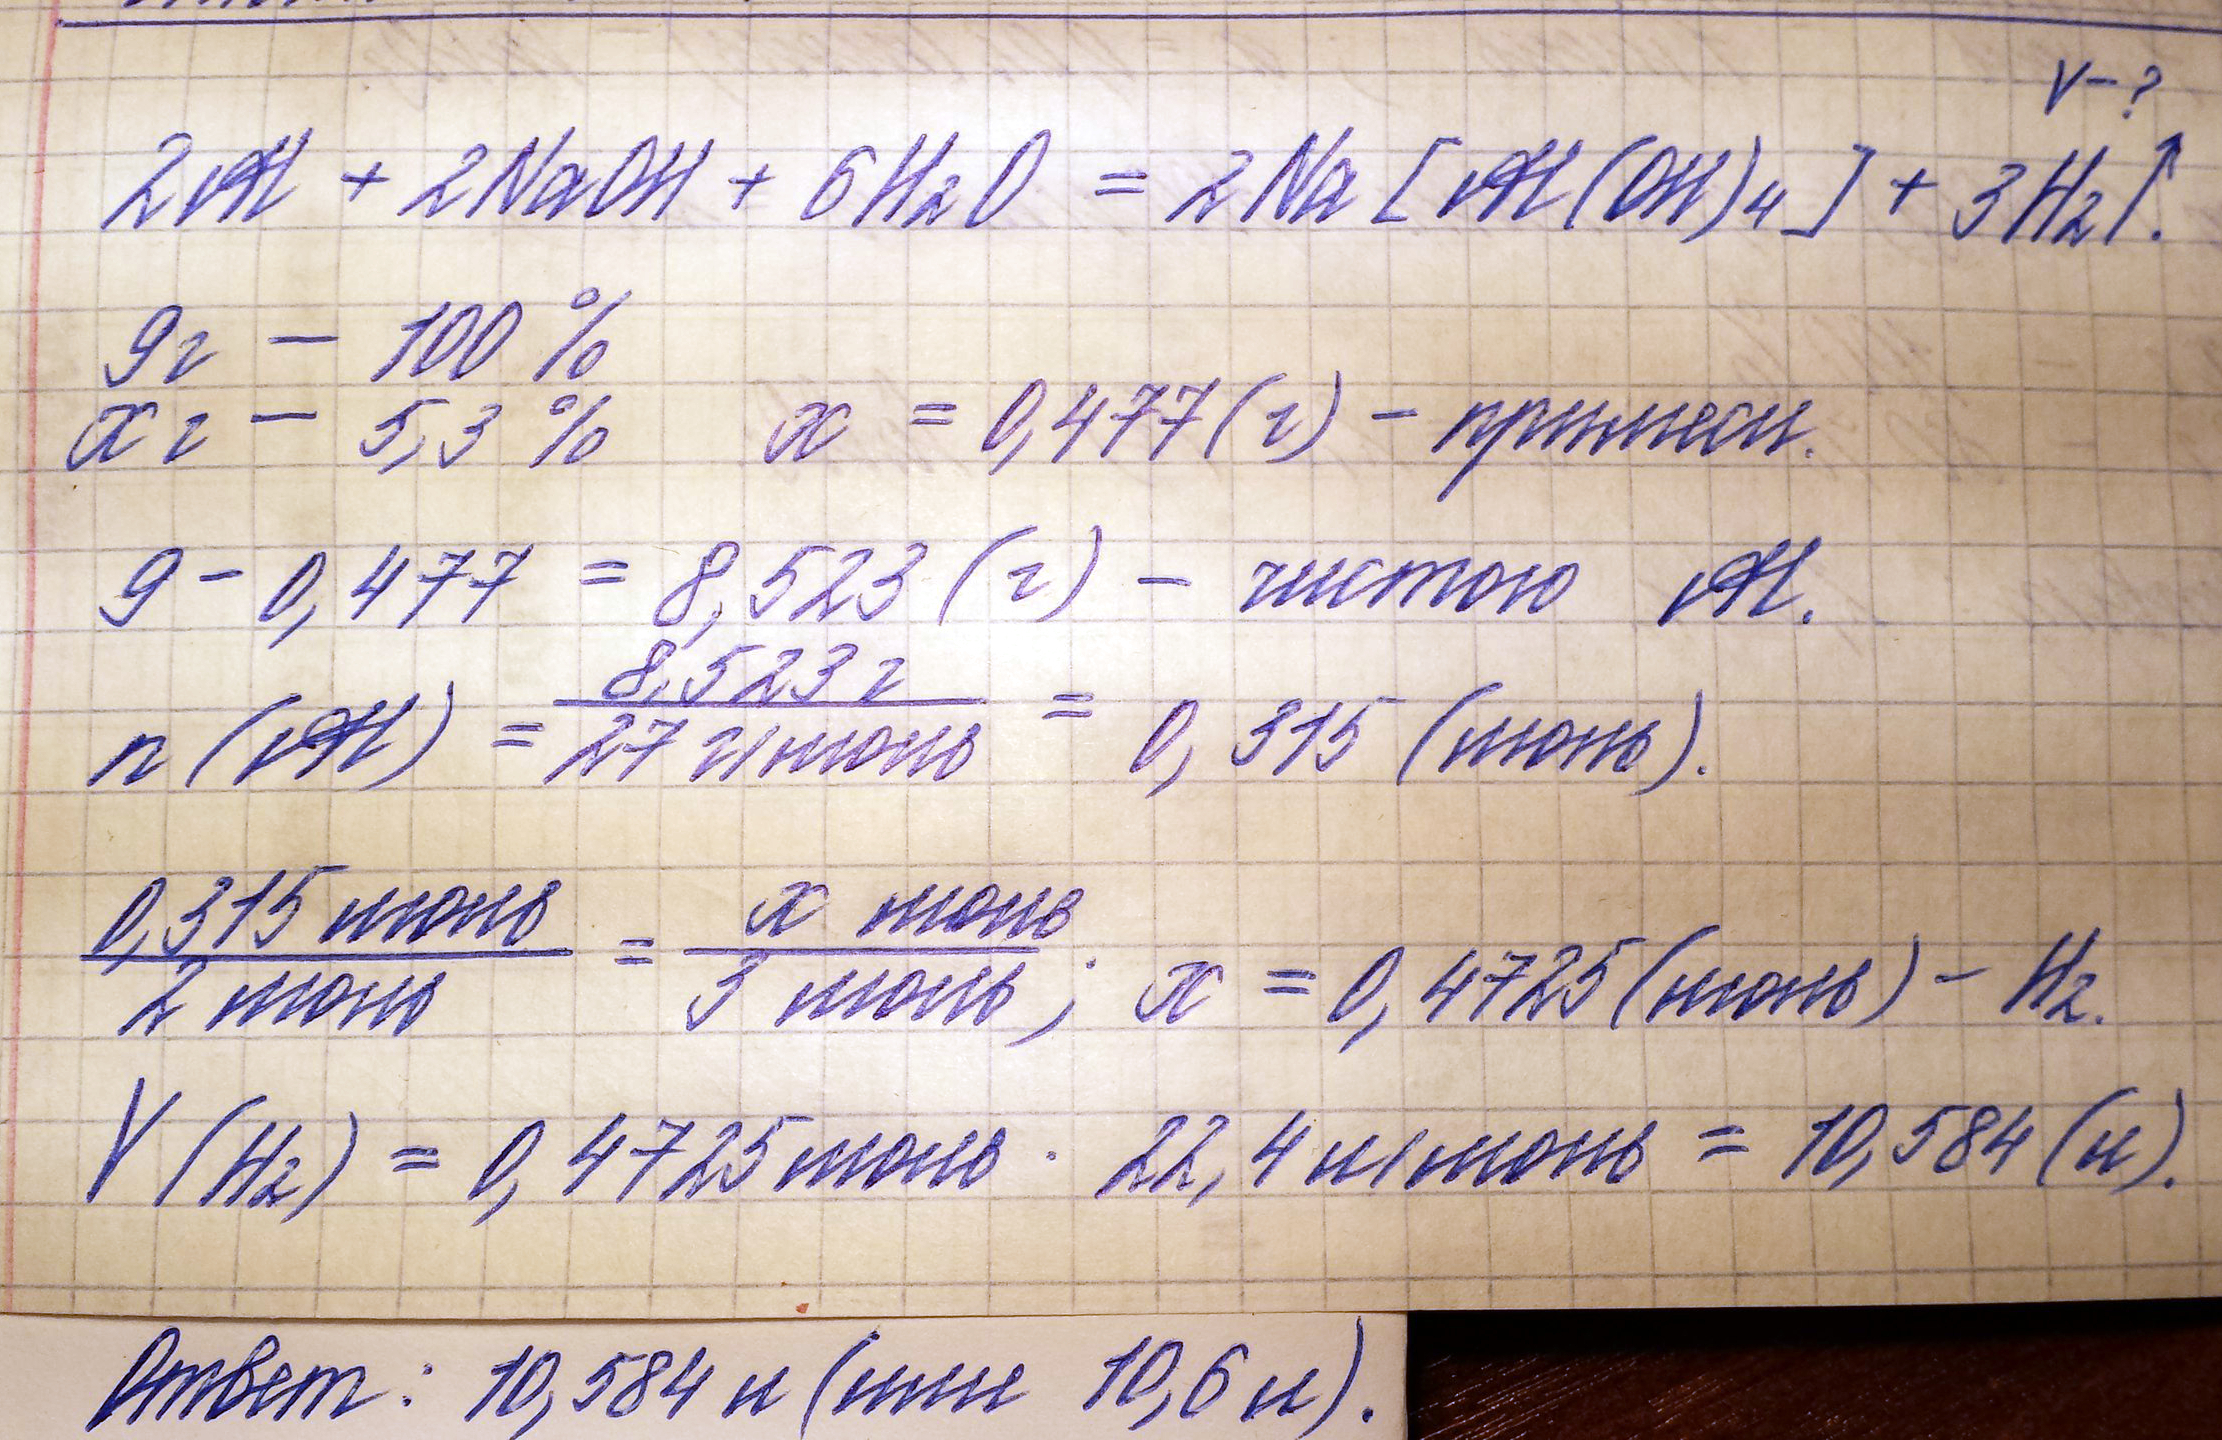 V - ?
2Al + 2NaOH + 6H₂O = 2Na[Al(OH)₄] + 3H₂↑.
9г — 100 %
xг — 5,3 % x = 0,477(г) - примеси.
9 - 0,477 = 8,523 (г) - чистого Al.
n (Al) = 8,523 г / 27 г/моль = 0,315 (моль).
0,315 моль / 2 моль = x моль / 3 моль ; x = 0,4725(моль) - H₂.
V (H₂) = 0,4725 моль · 22,4 л/моль = 10,584 (л).
Ответ: 10,584 л (или 10,6 л).